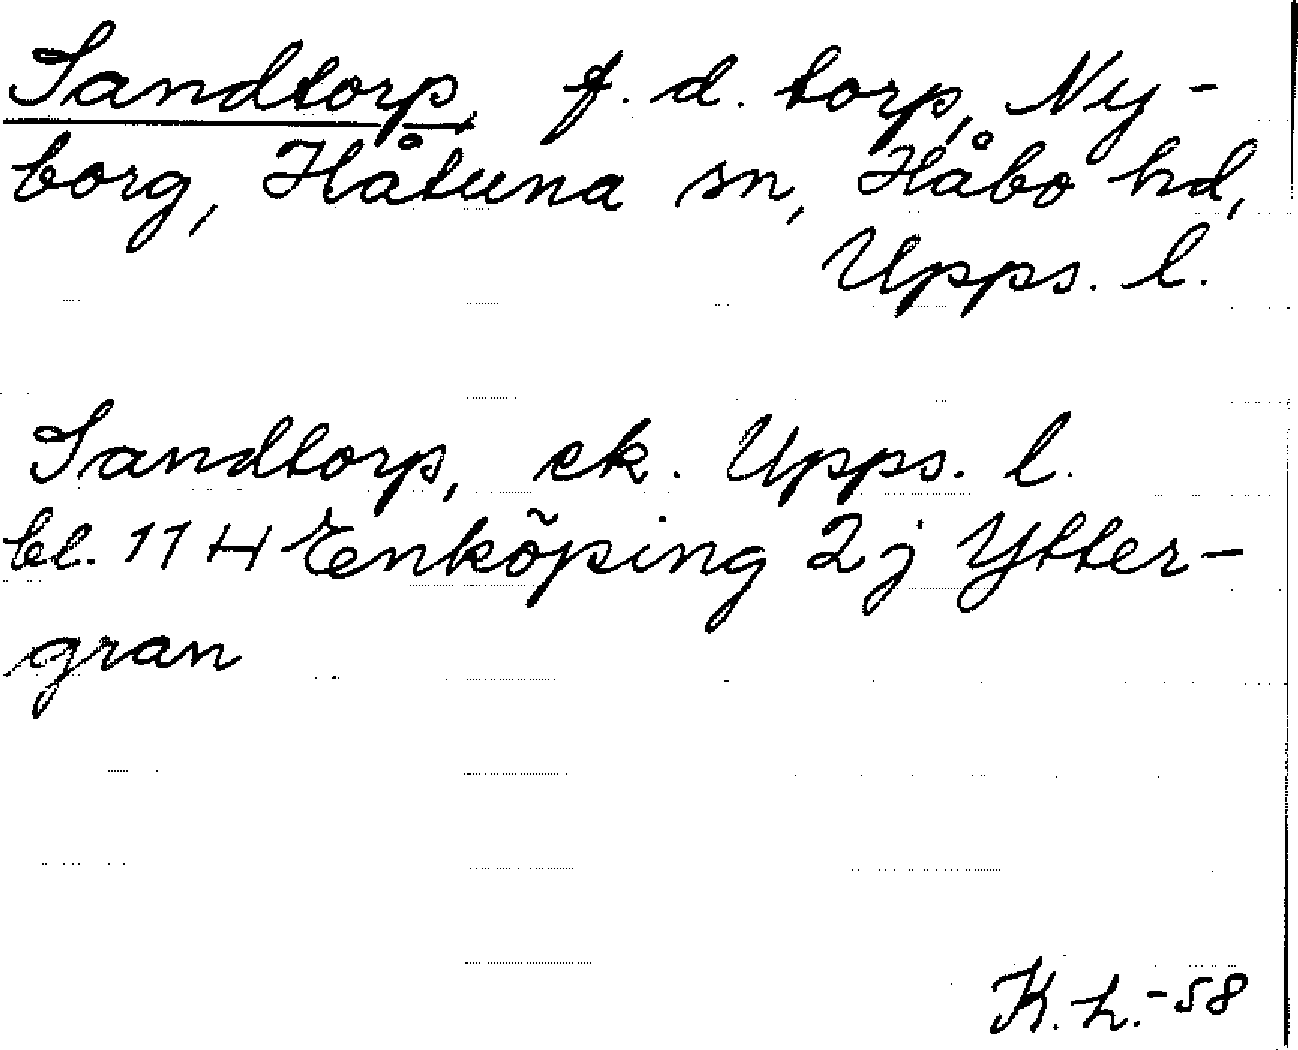 Sandtorp, f. d. torp, Ny-
borg, Håtuna sn, Håbo hd,
Upps. l.
Sandtorp, ek. Upps. l.
bl. 11 H Enköping 2j Ytter-
gran
K. L. -58